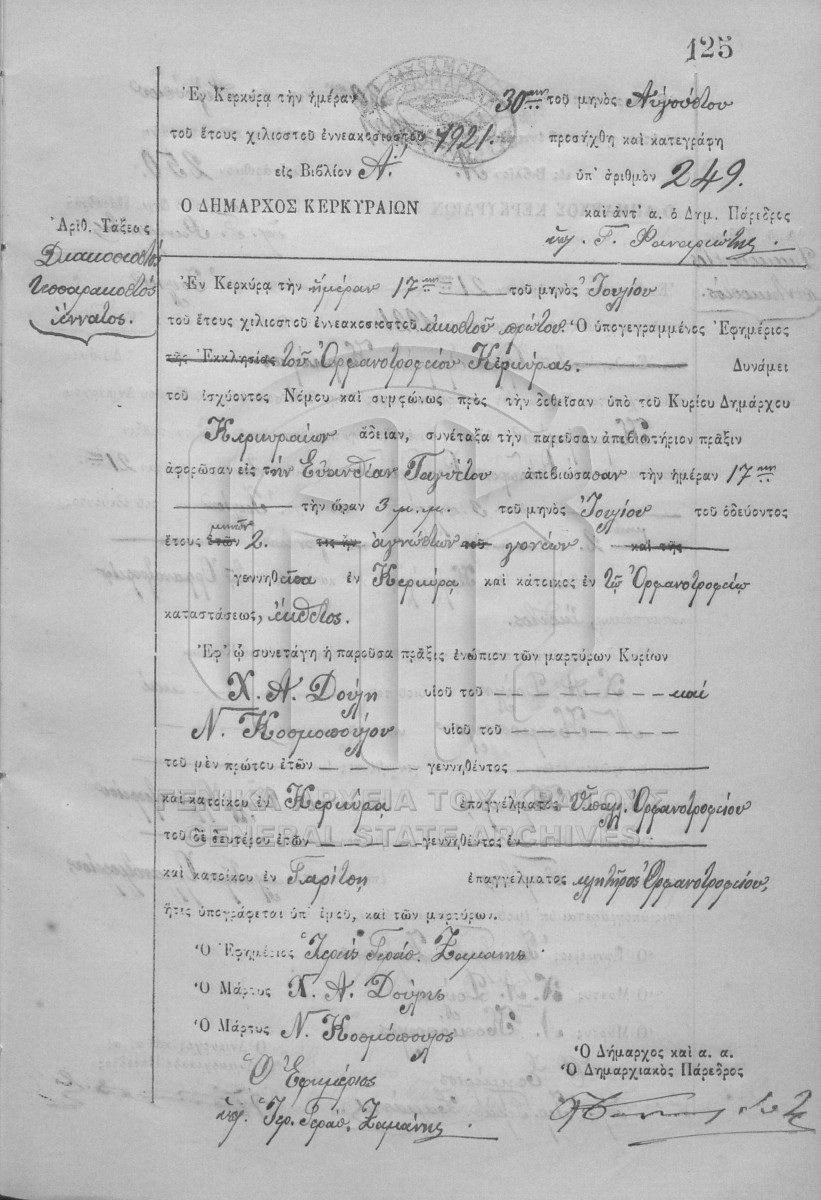 125
Ἐν Κερκύρᾳ τὴν ἡμέραν 30ην τοῦ μηνὸς Αὐγούστου
τοῦ ἔτους χιλιοστοῦ ἐννεακοσιοστοῦ 1921. προσήχθη καὶ κατεγράφη
εἰς Βιβλίον Α. ὑπ' ἀριθμὸν 249.
Ο ΔΗΜΑΡΧΟΣ ΚΕΡΚΥΡΑΙΩΝ
καὶ ἀντ' α. ὁ Δημ. Πάρεδρος
Γ. Φαναριώτης
Ἀριθ. Τάξεως
Διακοσιοστὸς
τεσσαρακοστὸς
ἔννατος.
Ἐν Κερκύρᾳ τὴν ἡμέραν 17ην τοῦ μηνὸς Ἰουλίου
τοῦ ἔτους χιλιοστοῦ ἐννεακοσιοστοῦ εἰκοστοῦ πρώτου. Ὁ ὑπογεγραμμένος Ἐφημέριος
τῆς Ἐκκλησίας τοῦ Ὀρφανοτροφείου Κερκύρας. Δυνάμει
τοῦ ἰσχύοντος Νόμου καὶ συμφώνως πρὸς τὴν δοθεῖσαν ὑπὸ τοῦ Κυρίου Δημάρχου
Κερκυραίων ἄδειαν, συνέταξα τὴν παροῦσαν ἀπεβιωτήριον πρᾶξιν
ἀφορῶσαν εἰς τὴν Εὐανθίαν Ταϋγέτου ἀπεβιώσασαν τὴν ἡμέραν 17ην
τὴν ὥραν 3 μ.μ. τοῦ μηνὸς Ἰουλίου τοῦ ὁδεύοντος
ἔτους ἐτῶν μηνῶν 2. ἀγνώστων τοῦ γονέων καὶ τῆς
γεννηθεῖσα ἐν Κερκύρᾳ καὶ κάτοικος ἐν τῷ Ὀρφανοτροφείῳ
καταστάσεως, ἔκθετος.
Ἐφ' ᾧ συνετάγη ἡ παροῦσα πρᾶξις ἐνώπιον τῶν μαρτύρων Κυρίων
Χ. Α. Δούλη υἱοῦ τοῦ καὶ
Ν. Κοσμοπούλου υἱοῦ τοῦ
τοῦ μὲν πρώτου ἐτῶν γεννηθέντος
καὶ κατοίκου ἐν Κερκύρᾳ ἐπαγγέλματος Ὑπαλ. Ὀρφανοτροφείου
ΓΕΝΙΚΑ ΑΡΧΕΙΑ ΤΟΥ ΚΡΑΤΟΥΣ
GENERAL STATE ARCHIVES
τοῦ δὲ δευτέρου ἐτῶν γεννηθέντος ἐν
καὶ κατοίκου ἐν Γαρίτσῃ ἐπαγγέλματος κλητῆρος Ὀρφανοτροφείου,
ἥτις ὑπογράφεται ὑπ' ἐμοῦ, καὶ τῶν μαρτύρων.
Ὁ Ἐφημέριος Ἱερεὺς Γεράσ. Ζαμάνης
Ὁ Μάρτυς Χ. Α. Δούλης
Ὁ Μάρτυς Ν. Κοσμόπουλος
Ὁ Ἐφημέριος
Ἱερ. Γεράσ. Ζαμάνης
Ὁ Δήμαρχος καὶ α. α.
Ὁ Δημαρχιακὸς Πάρεδρος